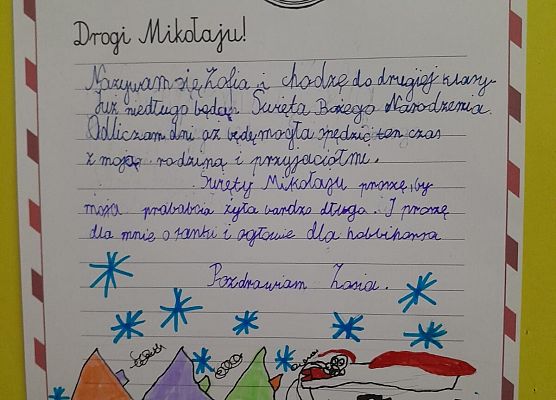 Drogi Mikołaju!
Nazywam się Zofia i chodzę do drugiej klasy.
Już niedługo będą Święta Bożego Narodzenia.
Odliczam dni aż będę mogła spędzić ten czas
z moją rodziną i przyjaciółmi.
Święty Mikołaju proszę, by
moja prababcia żyła bardzo długo. I proszę
dla mnie o sanki i ogłowie dla hobbihorsa
Pozdrawiam Zosia.